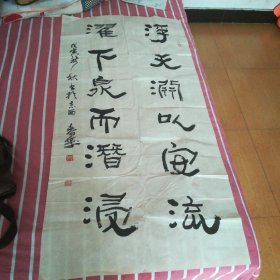 浮天淵以安流
濯下泉而潜浸